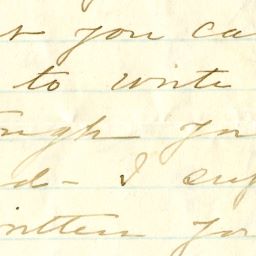 you ca
to write
ugh yo
d- I sup
written yo